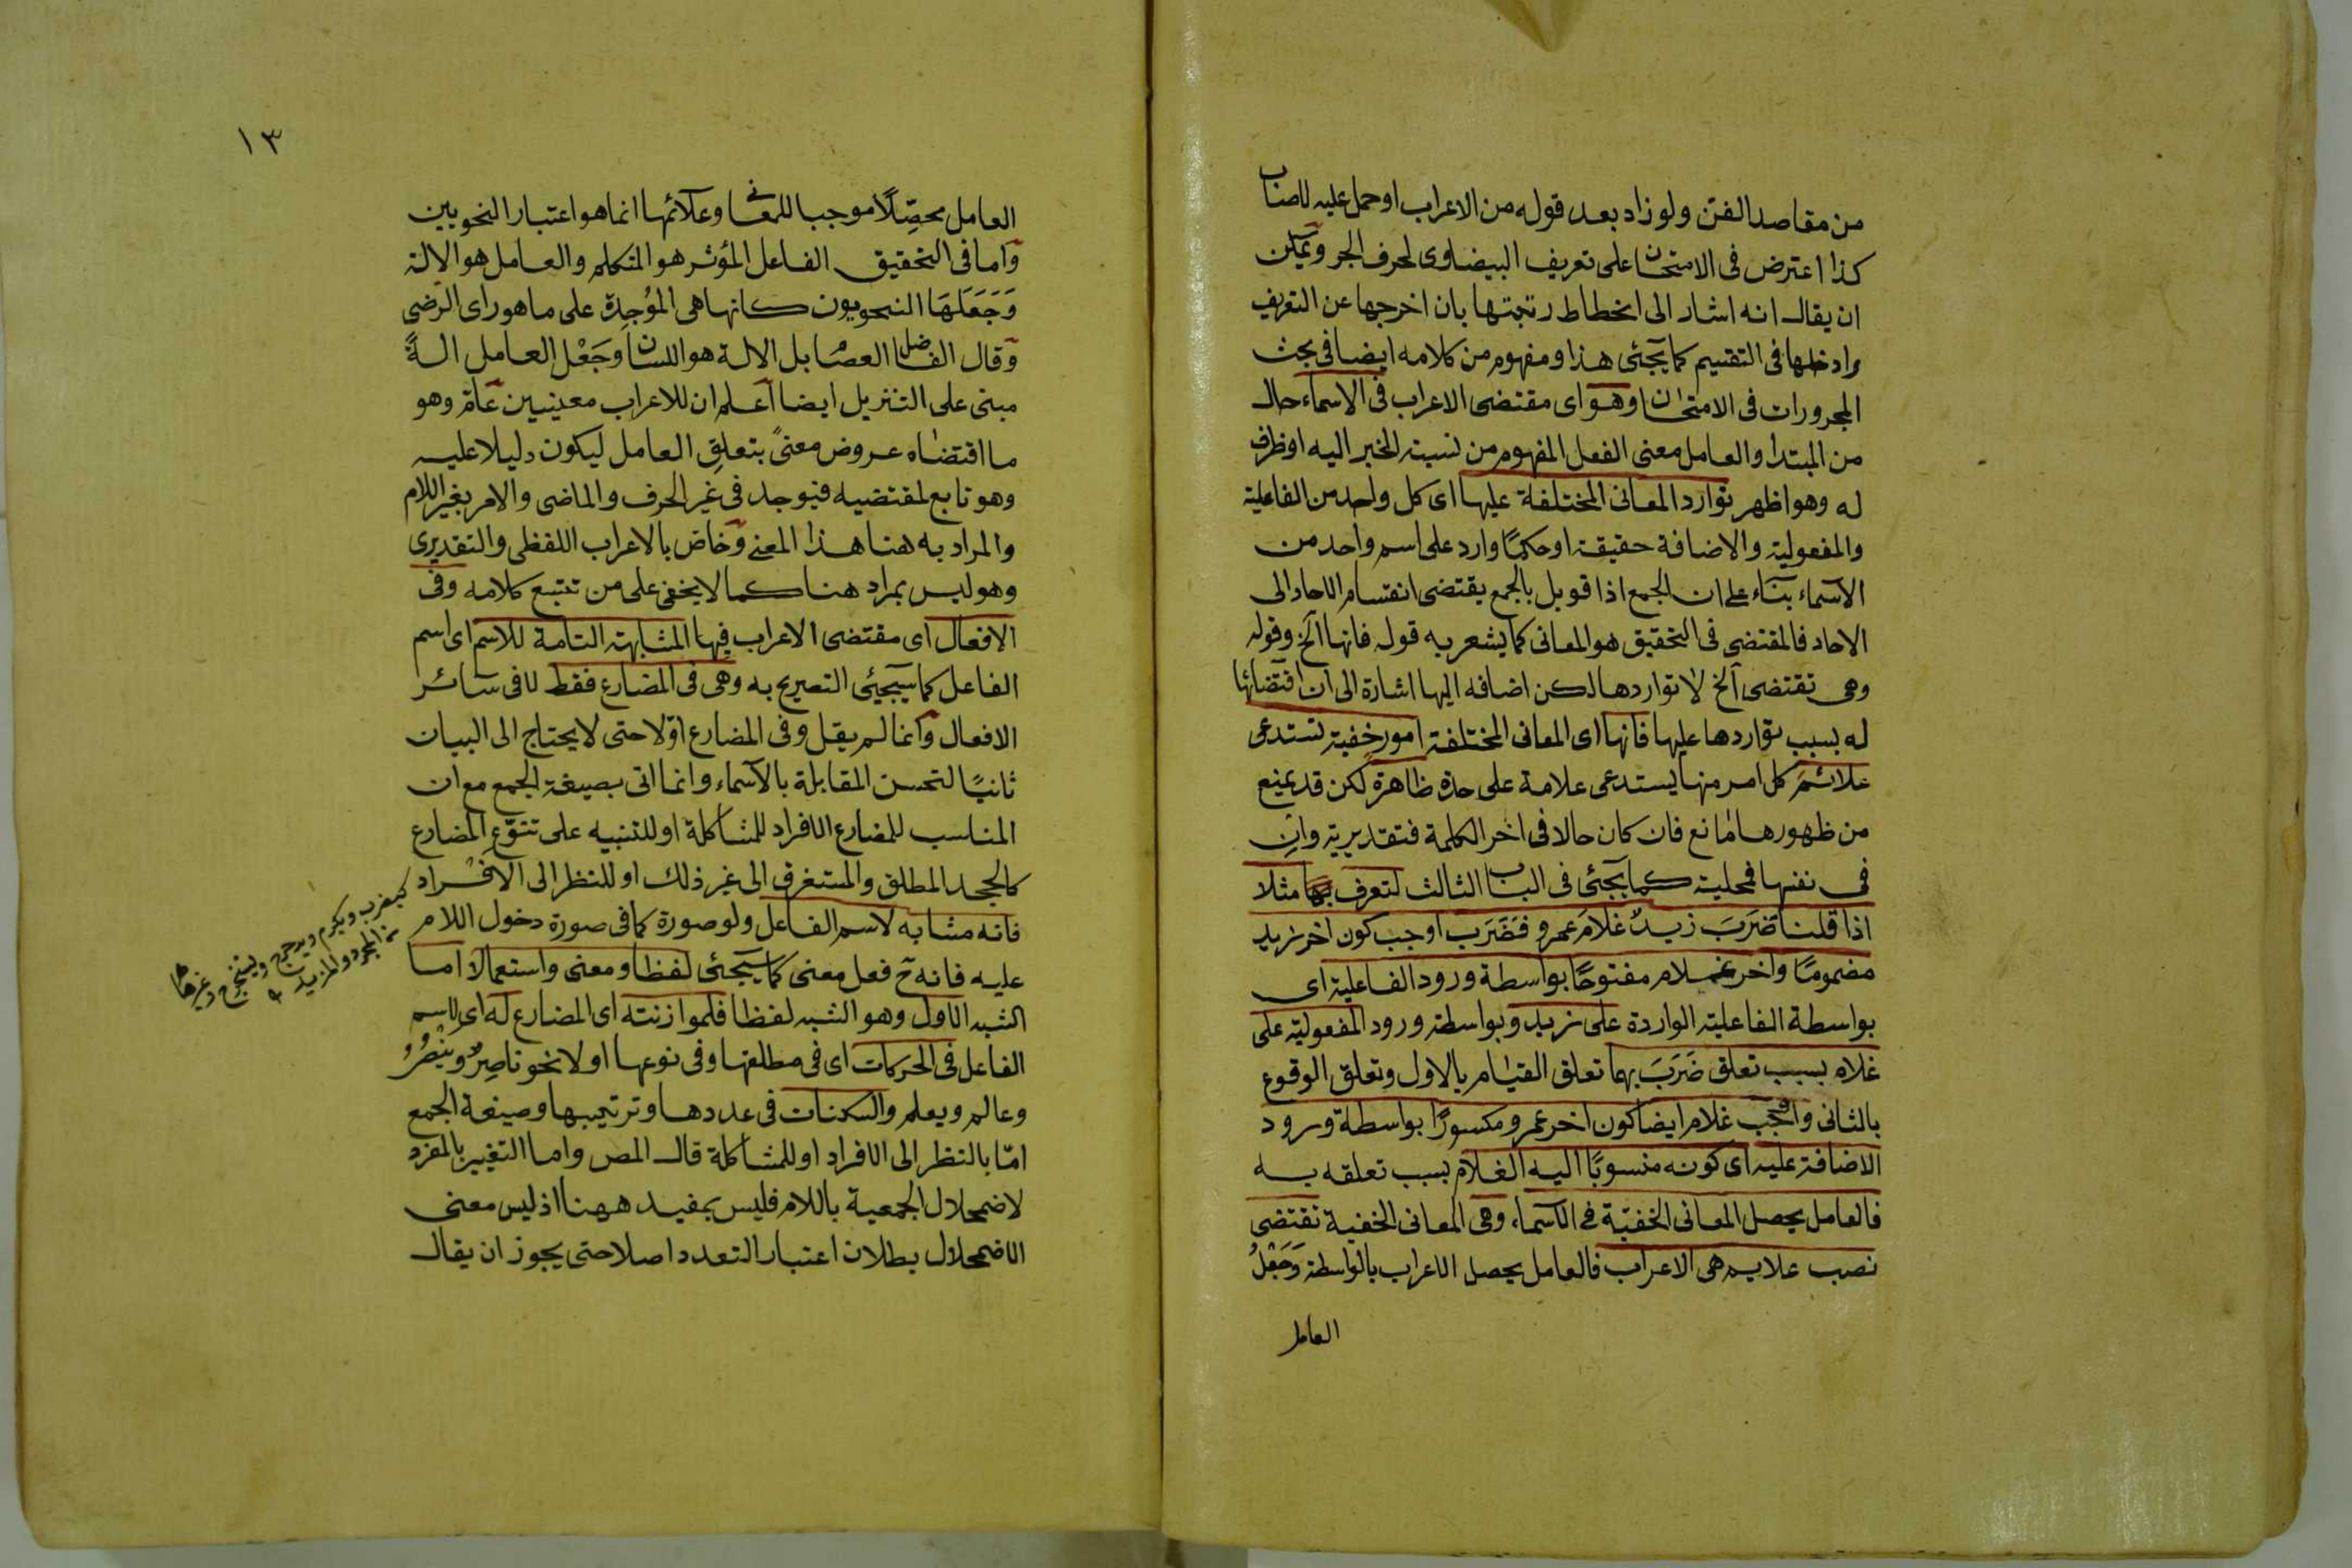 من مقاصد الفن ولو زاد بعد قوله من الاعراب او حمل عليه لاصاب
كذا اعترض فى الامتحان على تعريف البيضاوى لحرف الجر ويمكن
ان يقال انه اشار الى انحطاط رتبتها بان اخرجها عن التعريف
وادخلها فى التقسيم كما يجئى هذا ومفهوم من كلامه ايضا فى بحث
المجرورات فى الامتحان وهو اى مقتضى الاعراب فى الاسماء حال
من المبتدا والعامل معنى الفعل المفهوم من نسبته الخبر اليه او ظرف
له وهو اظهر توارد المعانى المختلفة عليها اى كل واحد من الفاعلية
والمفعولية والاضافة حقيقة او حكمًا وارد على اسم واحد من
الاسماء بناء على ان الجمع اذا قوبل بالجمع يقتضى انقسام الاحاد الى
الاحاد فالمقتضى فى التحقيق هو المعانى كما يشعر به قوله فانها الخ وقوله
وهى تقتضى الخ لا تواردها لكن اضافه اليها اشارة الى ان اقتضائها
له بسبب تواردها عليها فانها اى المعانى المختلفة امور خفية تستدعى
علائم كل امر منها يستدعى علامة على حدة ظاهرة لكن قد يمنع
من ظهورها مانع فان كان حالا فى اخر الكلمة فتقديرية وان
فى نفسها فمحلية كما يجئى فى الباب الثالث لتعرف بها مثلا
اذا قلنا ضَرَبَ زيدٌ غلامَ عمرو فضَرَب اوجب كون اخر زيد
مضمومًا واخر غلام مفتوحًا بواسطة ورود الفاعلية اى
بواسطة الفاعلية الواردة على زيد وبواسطة ورود المفعولية على
غلام بسبب تعلق ضَرَبَ بهما تعلق القيام بالاول وتعلق الوقوع
بالثانى واوجب غلام ايضا كون اخر عمرو مكسورًا بواسطة ورود
الاضافة عليه اى كونه منسوبًا اليه الغلام بسبب تعلقه به
فالعامل يحصل المعانى الخفيّة فى الاسماء وهى المعانى الخفية تقتضى
نصب علايم هى الاعراب فالعامل يحصل الاعراب بالواسطة وَجَعْلُ
العامل
١٣
العامل محصِّلًا موجبا للمعانى وعلائمها انما هو اعتبار النحويين
واما فى التحقيق الفاعل المؤثر هو المتكلم والعامل هو الالة
وَجَعَلَهَا النحويون كانها هى المُوْجِدة على ما هو راى الرضى
وقال الفاضل العصام بل الالة هو اللسان وجَعْل العامل الةً
مبنى على التنزيل ايضا اعلم ان للاعراب معنيين عامّ وهو
ما اقتضاه عروض معنىً بتعلق العامل ليكون دليلا عليه
وهو تابع لمقتضيه فيوجد فى غير الحرف والماضى والامر بغير اللام
والمراد به هنا هذا المعنى وخاصّ بالاعراب اللفظى والتقديرى
وهو ليس بمراد هنا كما لا يخفى على من تتبع كلامه وفى
الافعال اى مقتضى الاعراب فيها المشابهة التامة للاسم اى اسم
الفاعل كما سيجيئى التصريح به وهى فى المضارع فقط لا فى سائر
الافعال وانما لم يقل وفى المضارع اوّلا حتى لا يحتاج الى البيان
ثانيًا لتحسن المقابلة بالاسماء وانما اتى بصيغة الجمع مع ان
المناسب للمضارع الافراد للمشاكلة او للتنبيه على تنوّع المضارع
كالجحد المطلق والمستغرق الى غير ذلك او للنظر الى الافراد
فانه مشابه لاسم الفاعل ولو صورة كما فى صورة دخول اللام
عليه فانه ح فعل معنى كما سيجئى لفظا ومعنى واستعمالا اما
الشبه الاول وهو الشبه لفظا فلموازنته اى المضارع له اى لاسم
الفاعل فى الحركات اى فى مطلقها وفى نوعها او لا نحو ناصِرٌ ويَنْصُرُ و
وعالم ويعلم والسكنات فى عددها وترتيبها وصيغة الجمع
امّا بالنظر الى الافراد او للمشاكلة قال المص واما التغيير بالمفرد
لاضمحلال الجمعية باللام فليس بمفيد ههنا اذ ليس معنى
الاضمحلال بطلان اعتبار التعدد اصلا حتى يجوز ان يقال
كيضرب ويكرم ويدحرج ويستخرج وغيرها
من المجرد والمزيد